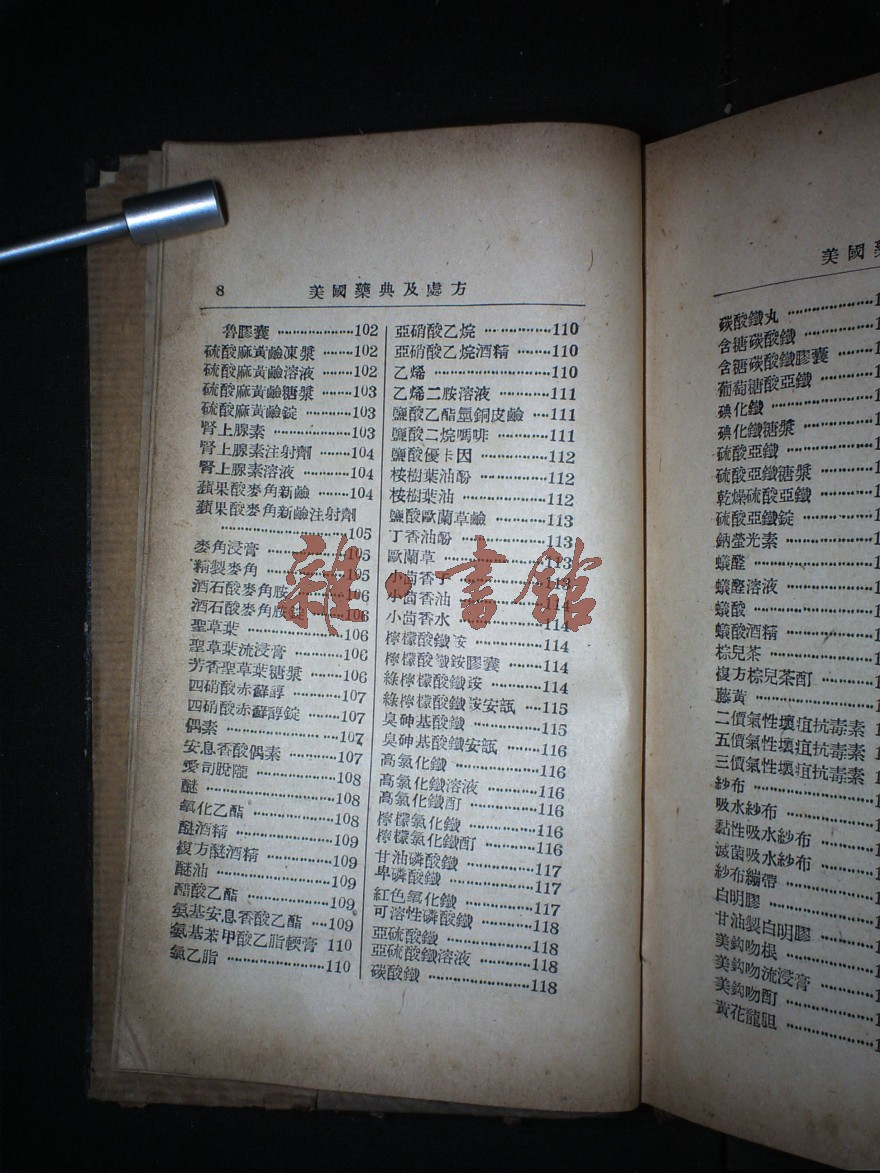 8 美國藥典及處方
魯膠囊 ··················102
硫酸麻黃鹼凍漿 ········102
硫酸麻黃鹼溶液 ········102
硫酸麻黃鹼糖漿 ········103
硫酸麻黃鹼錠 ···········103
腎上腺素 ·················103
腎上腺素注射劑 ········104
腎上腺素溶液 ···········104
蘋果酸麥角新鹼 ········104
蘋果酸麥角新鹼注射劑
··························105
麥角浸膏 ·················105
精製麥角 ·················105
酒石酸麥角胺 ···········106
酒石酸麥角胺錠 ········106
聖草葉 ····················106
聖草葉流浸膏 ···········106
芳香聖草葉糖漿 ········106
四硝酸赤蘚醇 ···········107
四硝酸赤蘚醇錠 ········107
偶素 ·······················107
安息香酸偶素 ···········107
愛司脫隴 ·················108
醚 ··························108
氧化乙酯 ·················108
醚酒精 ····················109
複方醚酒精 ··············109
醚油 ·······················109
醋酸乙酯 ·················109
氨基安息香酸乙酯 ···109
氨基苯甲酸乙脂輭膏 110
氯乙脂 ····················110
亞硝酸乙烷 ··············110
亞硝酸乙烷酒精 ········110
乙烯 ·······················110
乙烯二胺溶液 ···········111
鹽酸乙酯氫銅皮鹼 ···111
鹽酸二烷嗎啡 ···········111
鹽酸優卡因 ··············112
桉樹葉油酚 ··············112
桉樹葉油 ·················112
鹽酸歐蘭草鹼 ···········113
丁香油酚 ·················113
歐蘭草 ····················113
小茴香子 ·················113
小茴香油 ·················114
小茴香水 ·················114
檸檬酸鐵銨 ··············114
檸檬酸鐵銨膠囊 ········114
綠檸檬酸鐵銨 ···········114
綠檸檬酸鐵銨安瓿 ···115
臭砷基酸鐵 ··············115
臭砷基酸鐵安瓿 ········116
高氯化鐵 ·················116
高氯化鐵溶液 ···········116
高氯化鐵酊 ··············116
檸檬氯化鐵 ··············116
檸檬氯化鐵酊 ···········116
甘油磷酸鐵 ··············117
卑磷酸鐵 ·················117
紅色氧化鐵 ··············117
可溶性磷酸鐵 ···········118
亞硫酸鐵 ·················118
亞硫酸鐵溶液 ···········118
碳酸鐵 ····················118
美國
碳酸鐵丸
含糖碳酸鐵
含糖碳酸鐵膠囊
葡萄糖酸亞鐵
碘化鐵
碘化鐵糖漿
硫酸亞鐵
硫酸亞鐵糖漿
乾燥硫酸亞鐵
硫酸亞鐵錠
鈉螢光素
蟻醛
蟻醛溶液
蟻酸
蟻酸酒精
棕兒茶
複方棕兒茶酊
藤黃
二價氣性壞疽抗毒素
五價氣性壞疽抗毒素
三價氣性壞疽抗毒素
紗布
吸水紗布
黏性吸水紗布
滅菌吸水紗布
紗布繃帶
白明膠
甘油製白明膠
美鈎吻根
美鈎吻流浸膏
美鈎吻酊
黃花龍胆
雜·書館